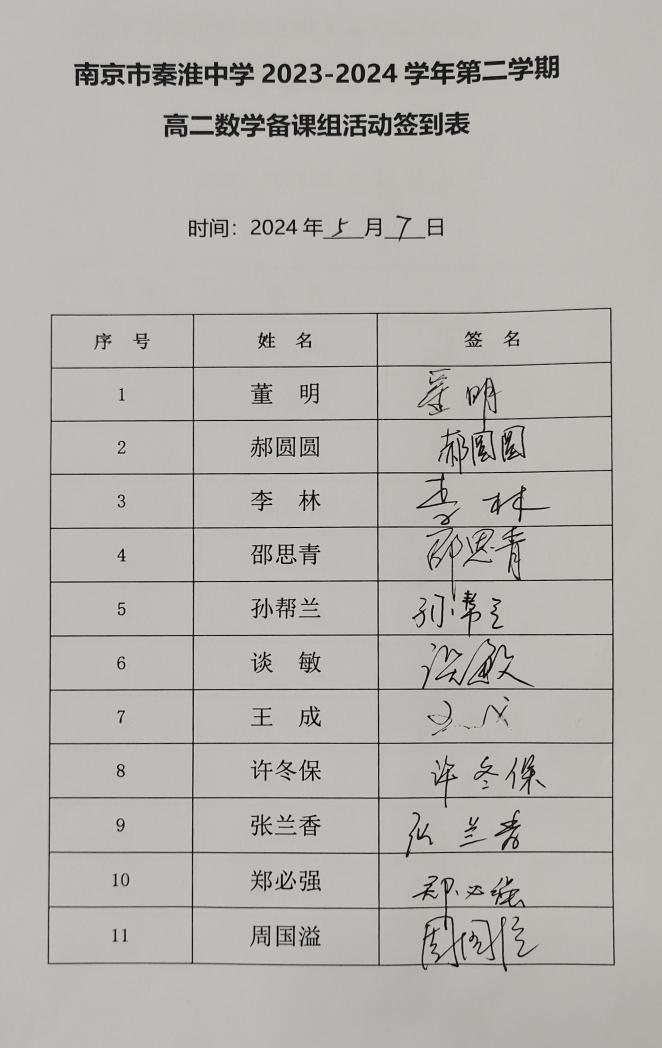 南京市秦淮中学 2023-2024 学年第二学期
高二数学备课组活动签到表
时间：2024 年 5 月 7 日
序 号 姓 名 签 名
1 董 明 董明
2 郝圆圆 郝圆圆
3 李 林 李林
4 邵思青 邵思青
5 孙帮兰 孙帮兰
6 谈 敏 谈敏
7 王 成 王成
8 许冬保 许冬保
9 张兰香 张兰香
10 郑必强 郑必强
11 周国溢 周国溢